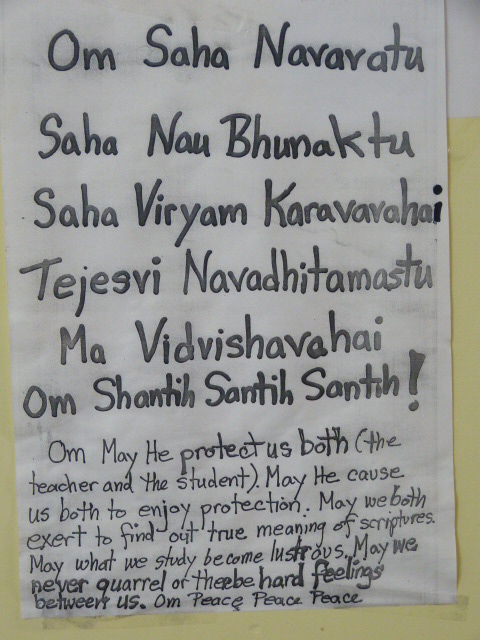 Om Saha Navavatu
Saha Nau Bhunaktu
Saha Viryam Karavavahai
Tejesvi Navadhitamastu
Ma Vidvishavahai
Om Shantih Santih Santih!
Om May He protect us both (the
teacher and the student). May He cause
us both to enjoy protection. May we both
exert to find out true meaning of scriptures.
May what we study become lustrous. May we
never quarrel or there be hard feelings
between us. Om Peace Peace Peace